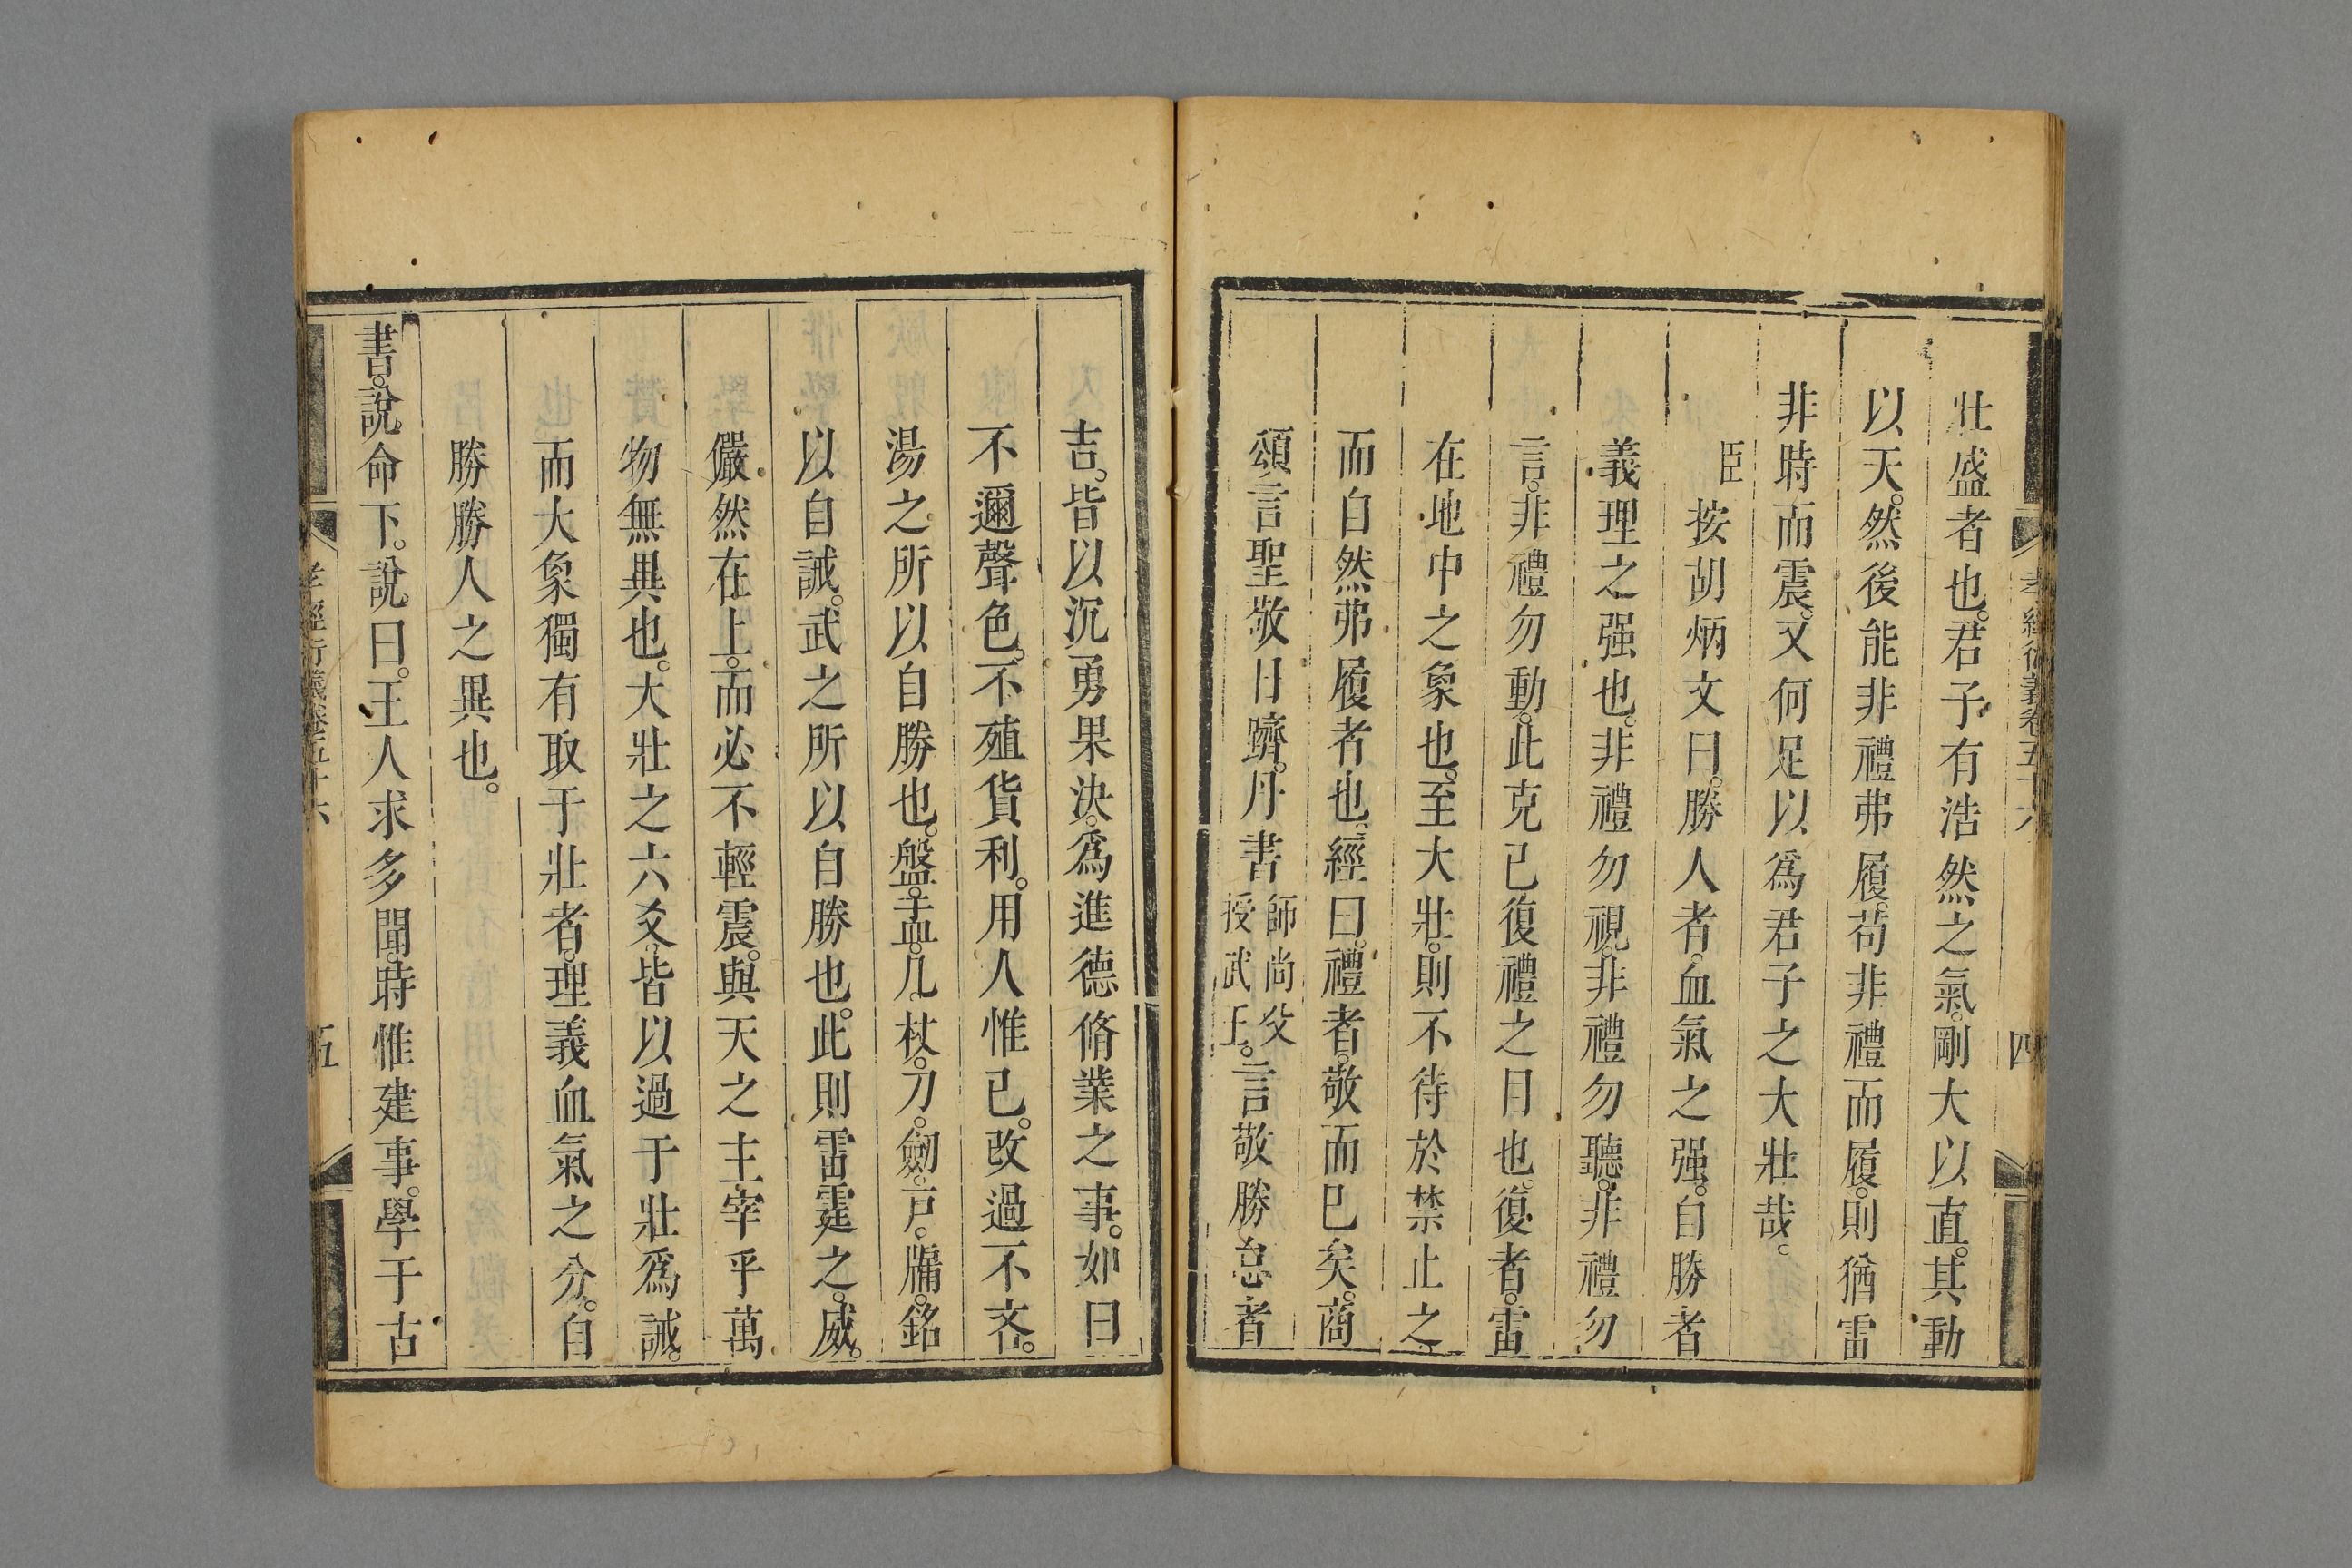 孝經衍義卷五十六
四
壯盛者也。君子有浩然之氣。剛大以直。其動
以天。然後能非禮弗履。苟非禮而履。則猶雷
非時而震。又何足以爲君子之大壯哉。
臣按胡炳文曰。勝人者。血氣之强。自勝者
義理之强也。非禮勿視。非禮勿聽。非禮勿
言。非禮勿動。此克己復禮之目也。復者。雷
在地中之象也。至大壯。則不待於禁止之
而自然弗履者也。經曰。禮者。敬而已矣。商
頌言聖敬日躋。丹書師尚父授武王。言敬勝怠者
吉。皆以沉勇果決。爲進德脩業之事。如曰
不邇聲色。不殖貨利。用人惟己。改過不吝。
湯之所以自勝也。盤。盂。几。杖。刀。劒。戸。牖。銘
以自誡。武之所以自勝也。此則雷霆之。威。
儼然在上。而必不輕震。與天之主宰乎萬
物無異也。大壯之六爻。皆以過于壯爲誡。
而大象獨有取于壯者。理義血氣之分。自
勝勝人之異也。
書。說命下。說曰。王人求多聞。時惟建事。學于古
孝經衍義卷五十六
五